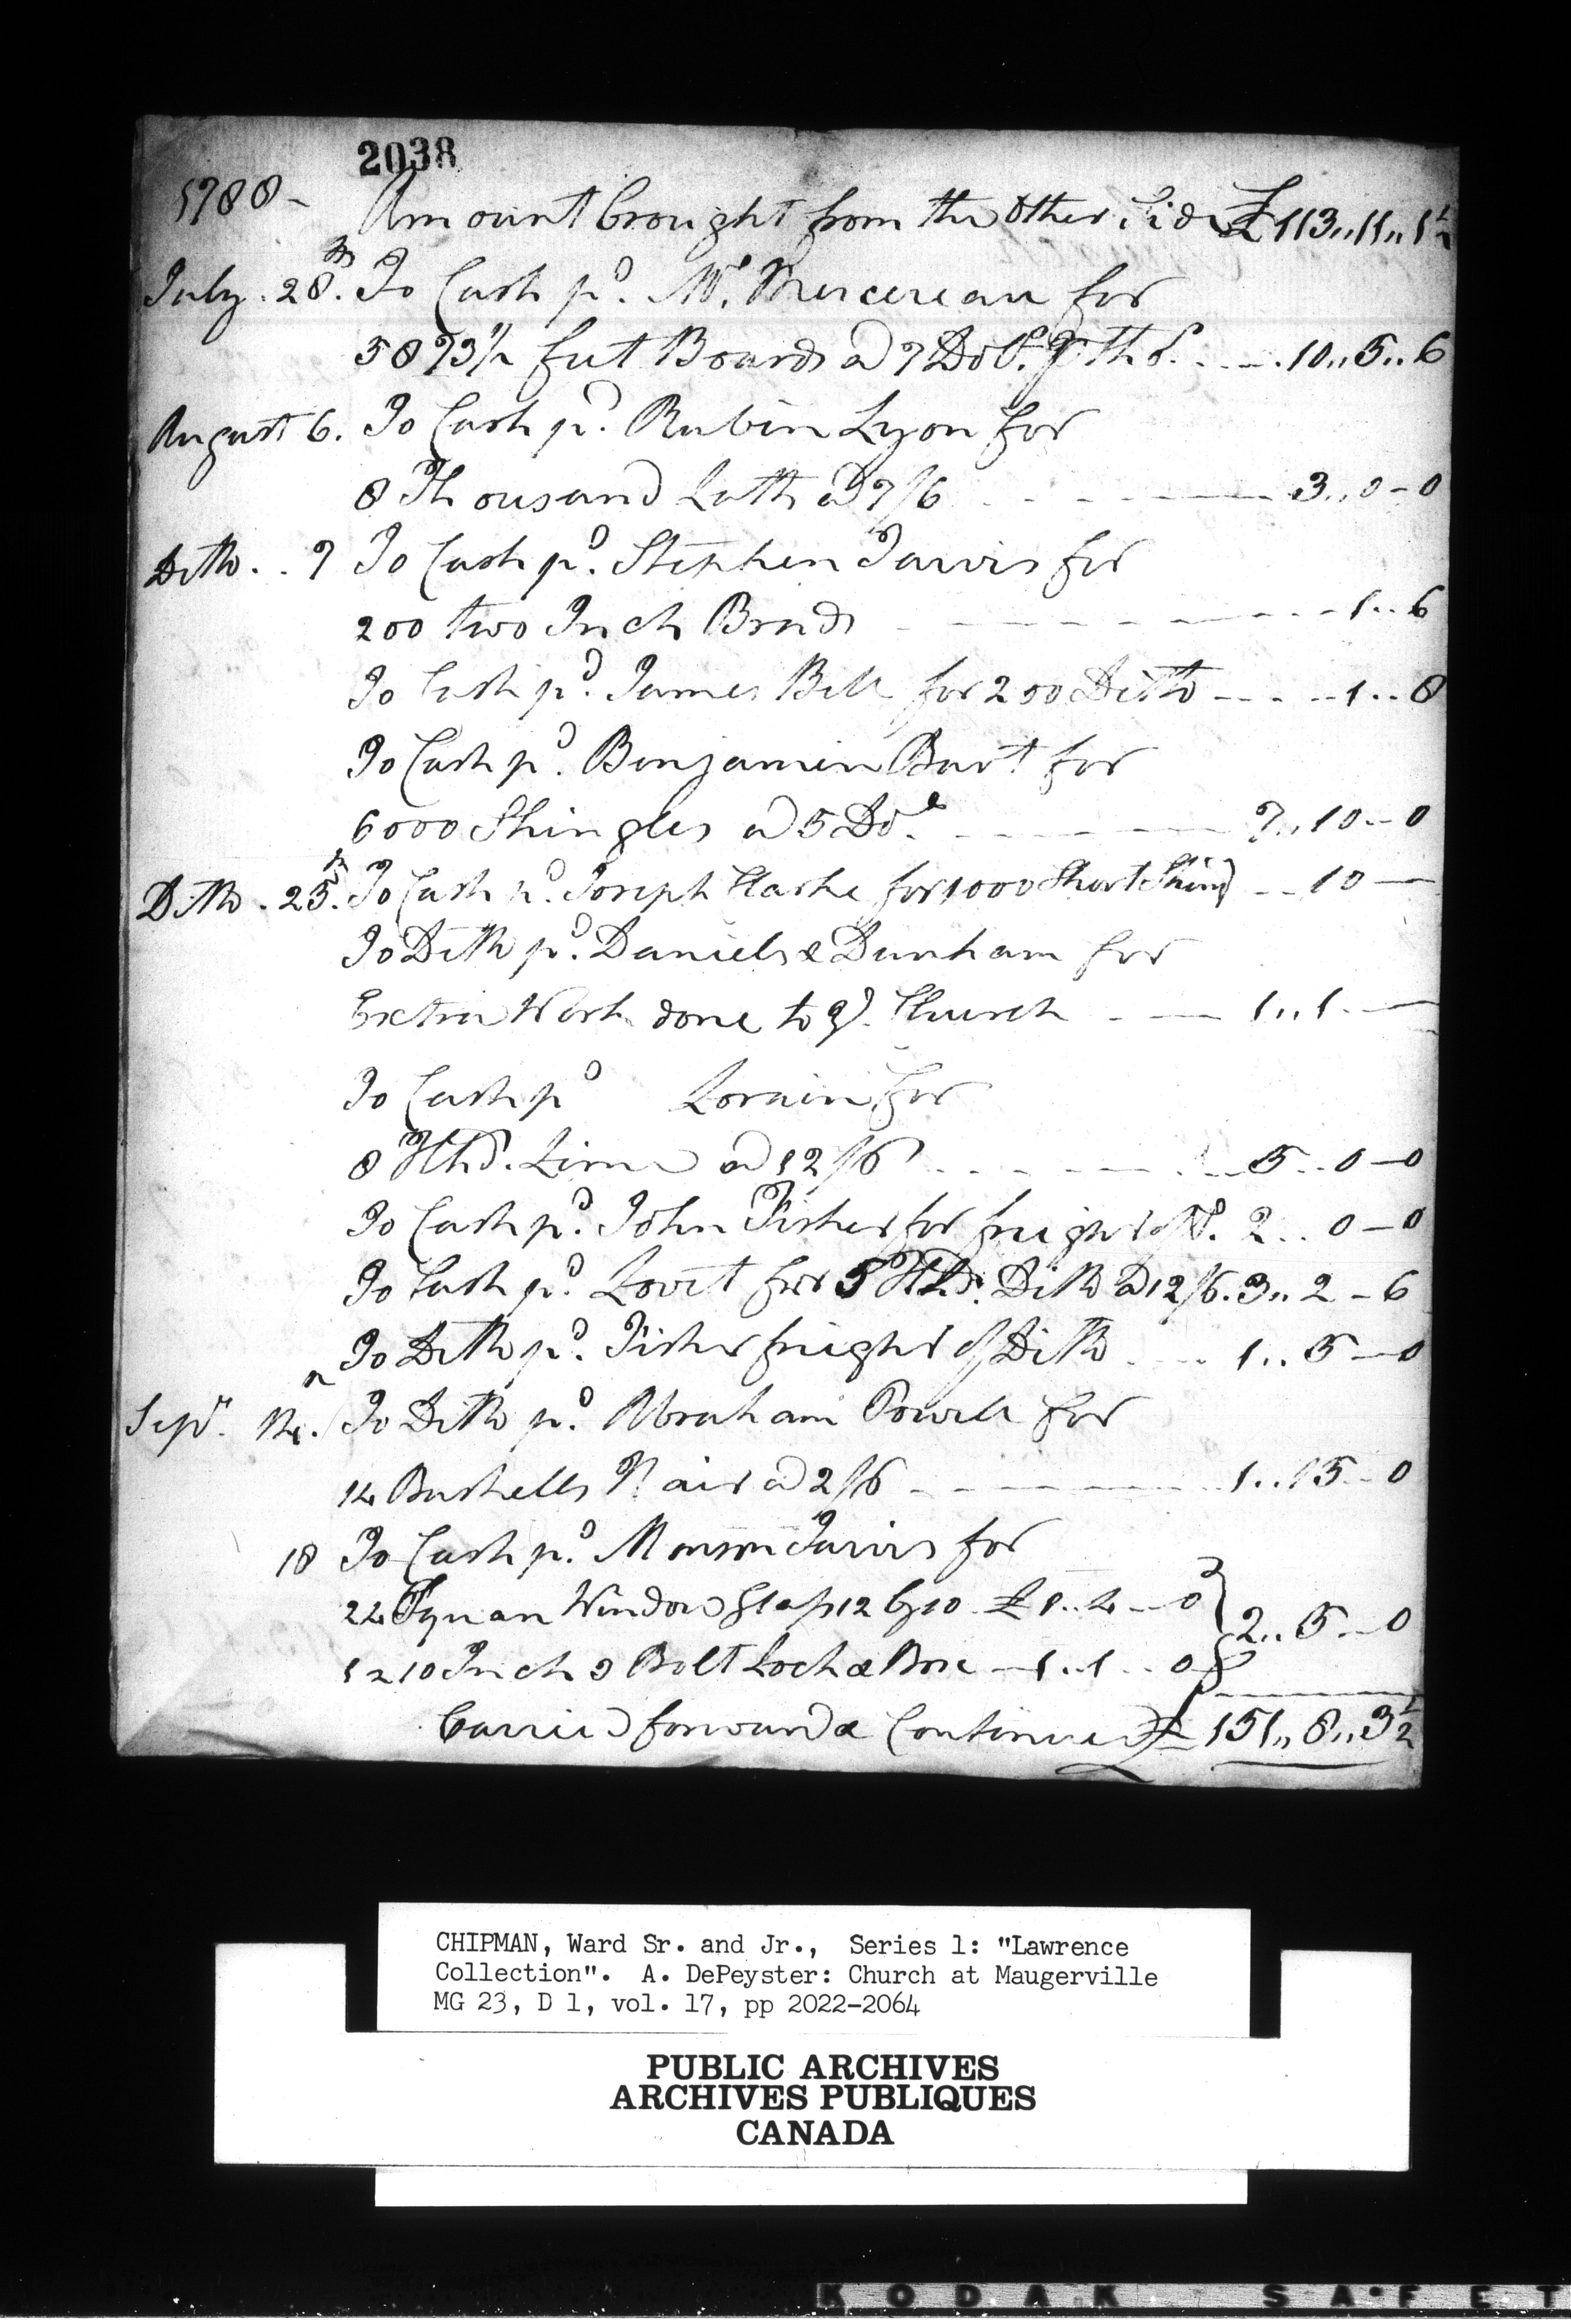 2038
1788 - Amount brought from the Other Side £ 113,,11,,1½
July . 28th. To Cash pd. Mr. Mersereau for
5873½ feet Boards @ 7 Dols. ⅌ Thd. . . - . 10,,5,,6
August 6. To Cash pd. Rubin Lyon for
8 Thousand Lath @ 7/6 - - - - 3,,0-0
Ditto . . 7 To Cash pd. Stephen Jarvis for
200 two Inch Brads - - - - 1..6
To Cash pd. James Bell for 200 Ditto - - - - 1..8
To Cash pd. Benjamin Burt for
6000 Shingles @ 5 Dos. - - - - 7,,10-0
Ditto - 25th. To Cash pd. Joseph Clarke for 1000 Short Shing - - 10 -
To Ditto pd. Daniels & Dunham for
Extra Work done to ye. Church - - 1,,1 -
To Cash pd Lorain for
8 Hhd. Lime @ 12/6 . . - - - 5..0-0
To Cash pd. John Fisher for freight of Do. 2..0-0
To Cash pd. Lovit for 5 Hhds. Ditto @ 12/6. 3,,2-6
To Ditto pd. Fisher freight of Ditto . . . . 1..5-0
Sepr. 14. To Ditto pd. Abraham Powell for
14 Bushells Hair @ 2/6 - - - - 1..15-0
18 To Cash pd. Monson Jarvis for
24 Squar Window Glass 12 by 10 £ 1..4-0
2..5-0
1 2 10 Inch 3 Bolt Lock & Box - 1..1..0
Carried forward & Continued £ 151,,8,,3½
CHIPMAN, Ward Sr. and Jr., Series 1: "Lawrence
Collection". A. DePeyster: Church at Maugerville
MG 23, D 1, vol. 17, pp 2022-2064
PUBLIC ARCHIVES
ARCHIVES PUBLIQUES
CANADA
KODAK SAFET